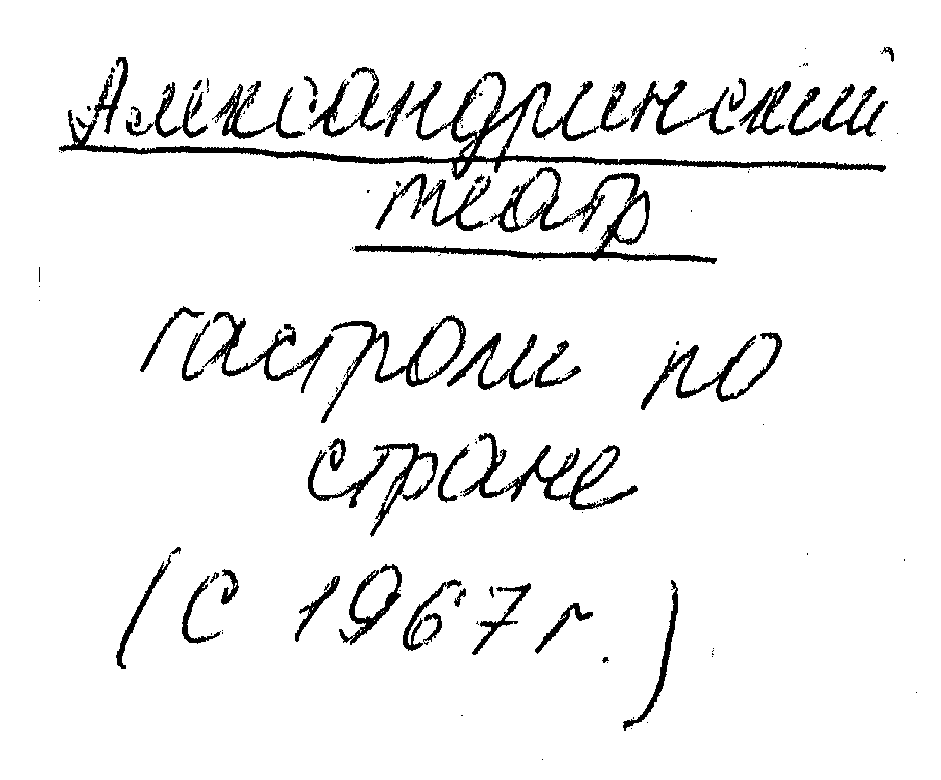 Александринский
театр
гастроли по
стране
(с 1967 г.)